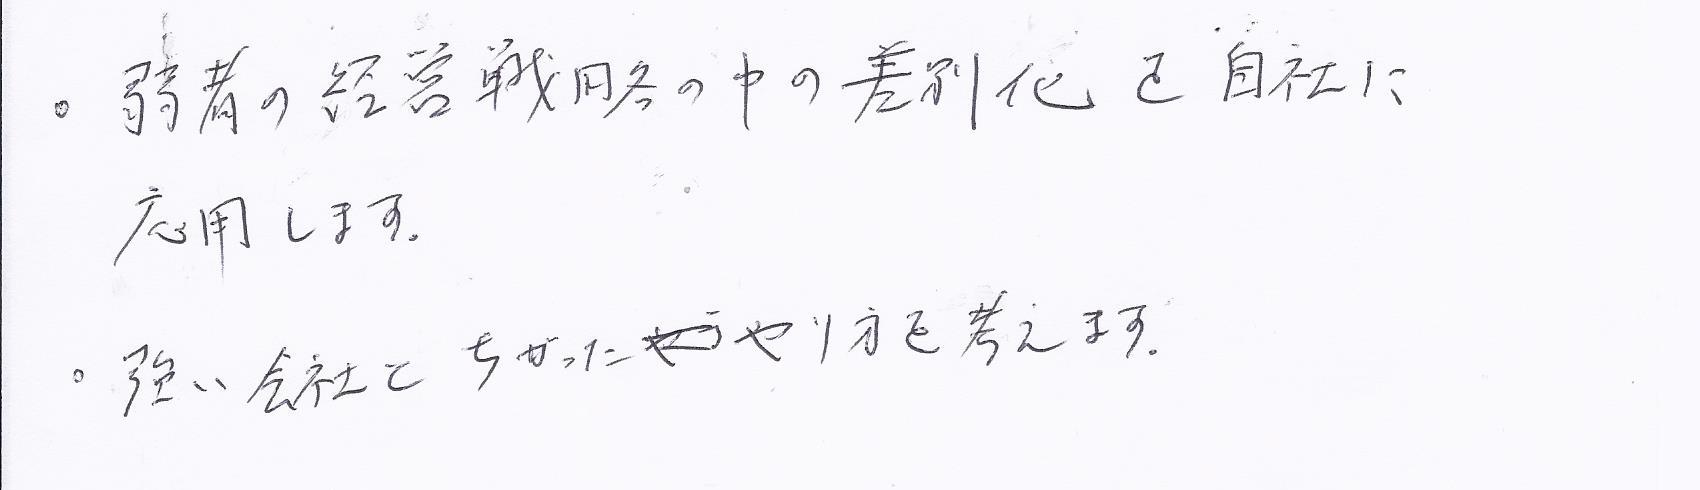 。弱者の経営戦略の中の差別化を自社に
応用します。
。強い会社とちがったやり方を考えます。